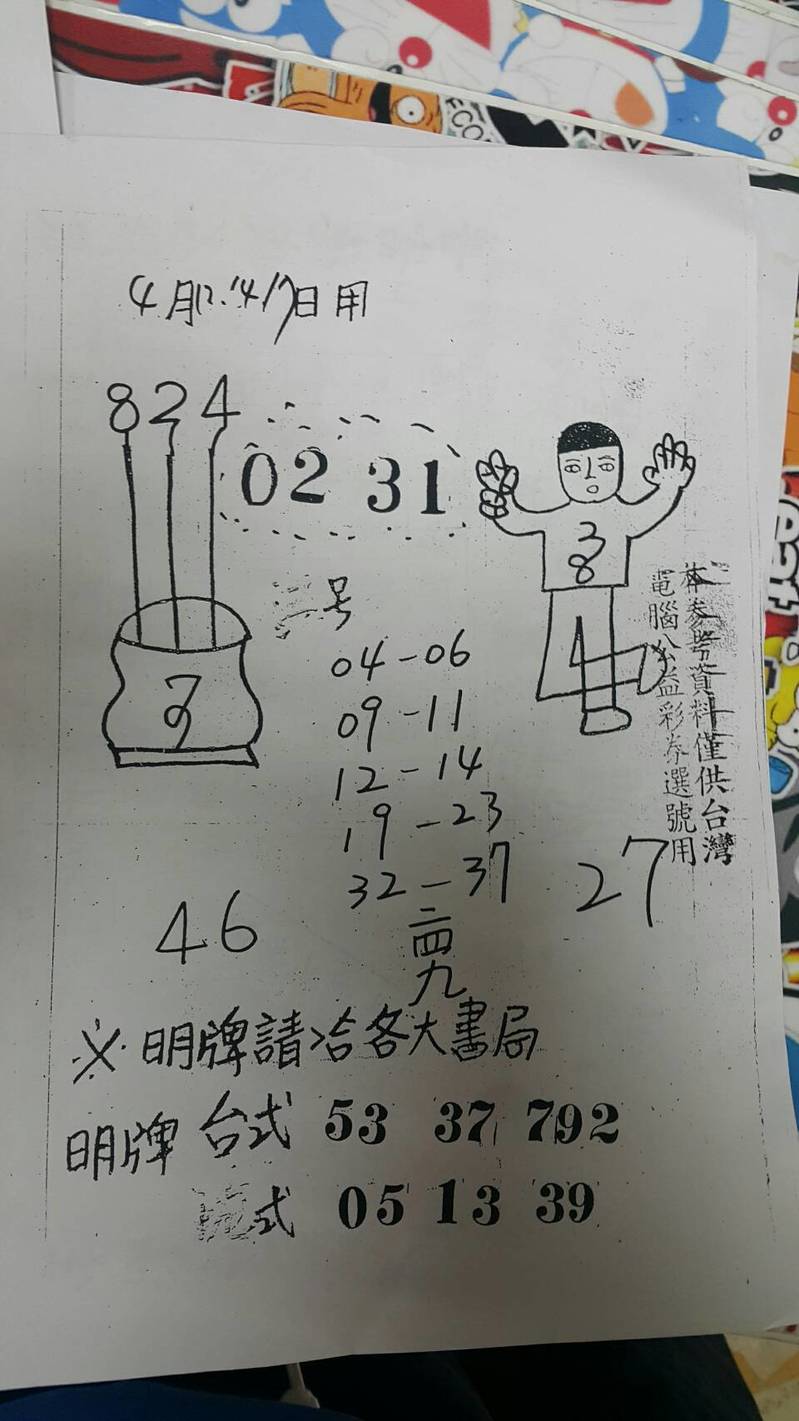 4月12.14.17日用
824
02 31
3
8
1
79
二号
04-06
09-11
12-14
19-23
32-37
二四九
46
27
本參考資料僅供台灣
電腦公益彩券選號用
※明牌請洽各大書局
明牌 台式 53 37 792
式 05 13 39